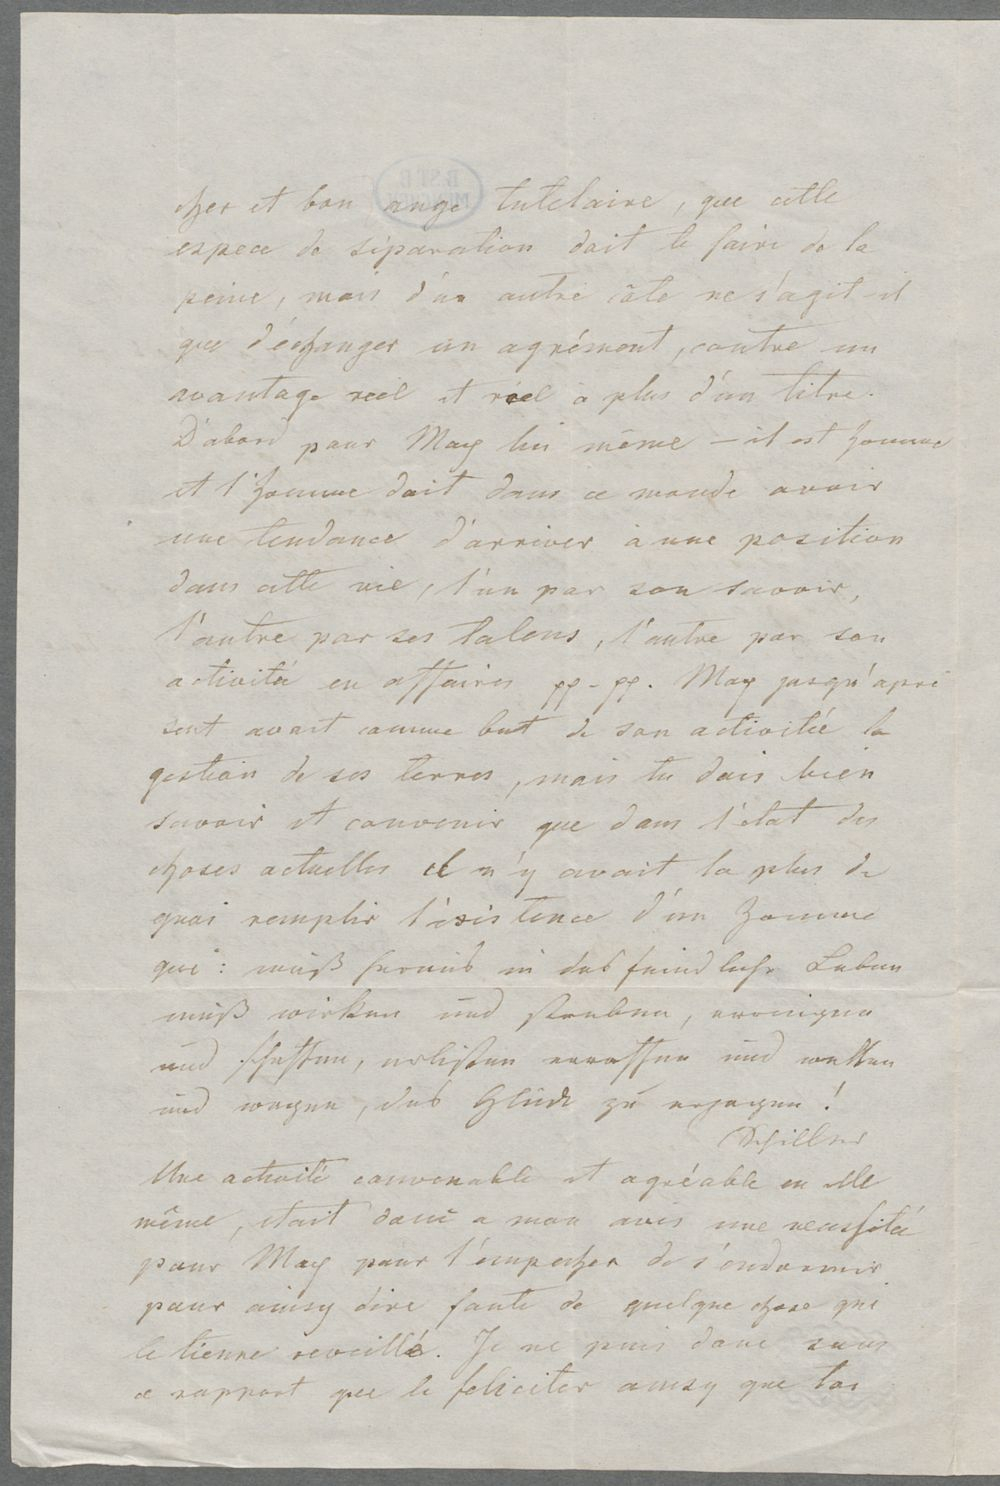 cher et bon ange tutelaire, que cette
espece de séparation doit te faire de la
peine, mais d'un autre côte ne s'agit-il
que d'échanger un agrément, contre un
avantage reel et réel à plus d'un titre.
D'abord pour Max lui même – il est homme
et l'homme doit dans ce monde avoir
une tendance d'arriver à une position
dans cette vie, l'un par son savoir,
l'autre par ses talens, l'autre par son
activité en affaires pp - pp. Max jusqu'à pré
sent avait comme but de son activitée la
gestion de ses terres, mais tu dois bien
savoir et convenir que dans l'état des
choses actuelles il n'y avait la plus de
quoi remplir l'existence d'un homme
qui: muß heraus in das feindliche Leben
muß wirken und streben,
und schaffen, erlisten erraffen und wetten
und wagen, das Glück zu erjagen!
Schiller
Une activité convenable et agréable en elle
même, etait donc a mon avis une necessitée
pour Max pour l'empecher de s'endormir
pour ainsy dire faute de quelque chose qui
le tienne reveillé. Je ne puis donc sous
ce rapport que le feliciter ainsy que toi